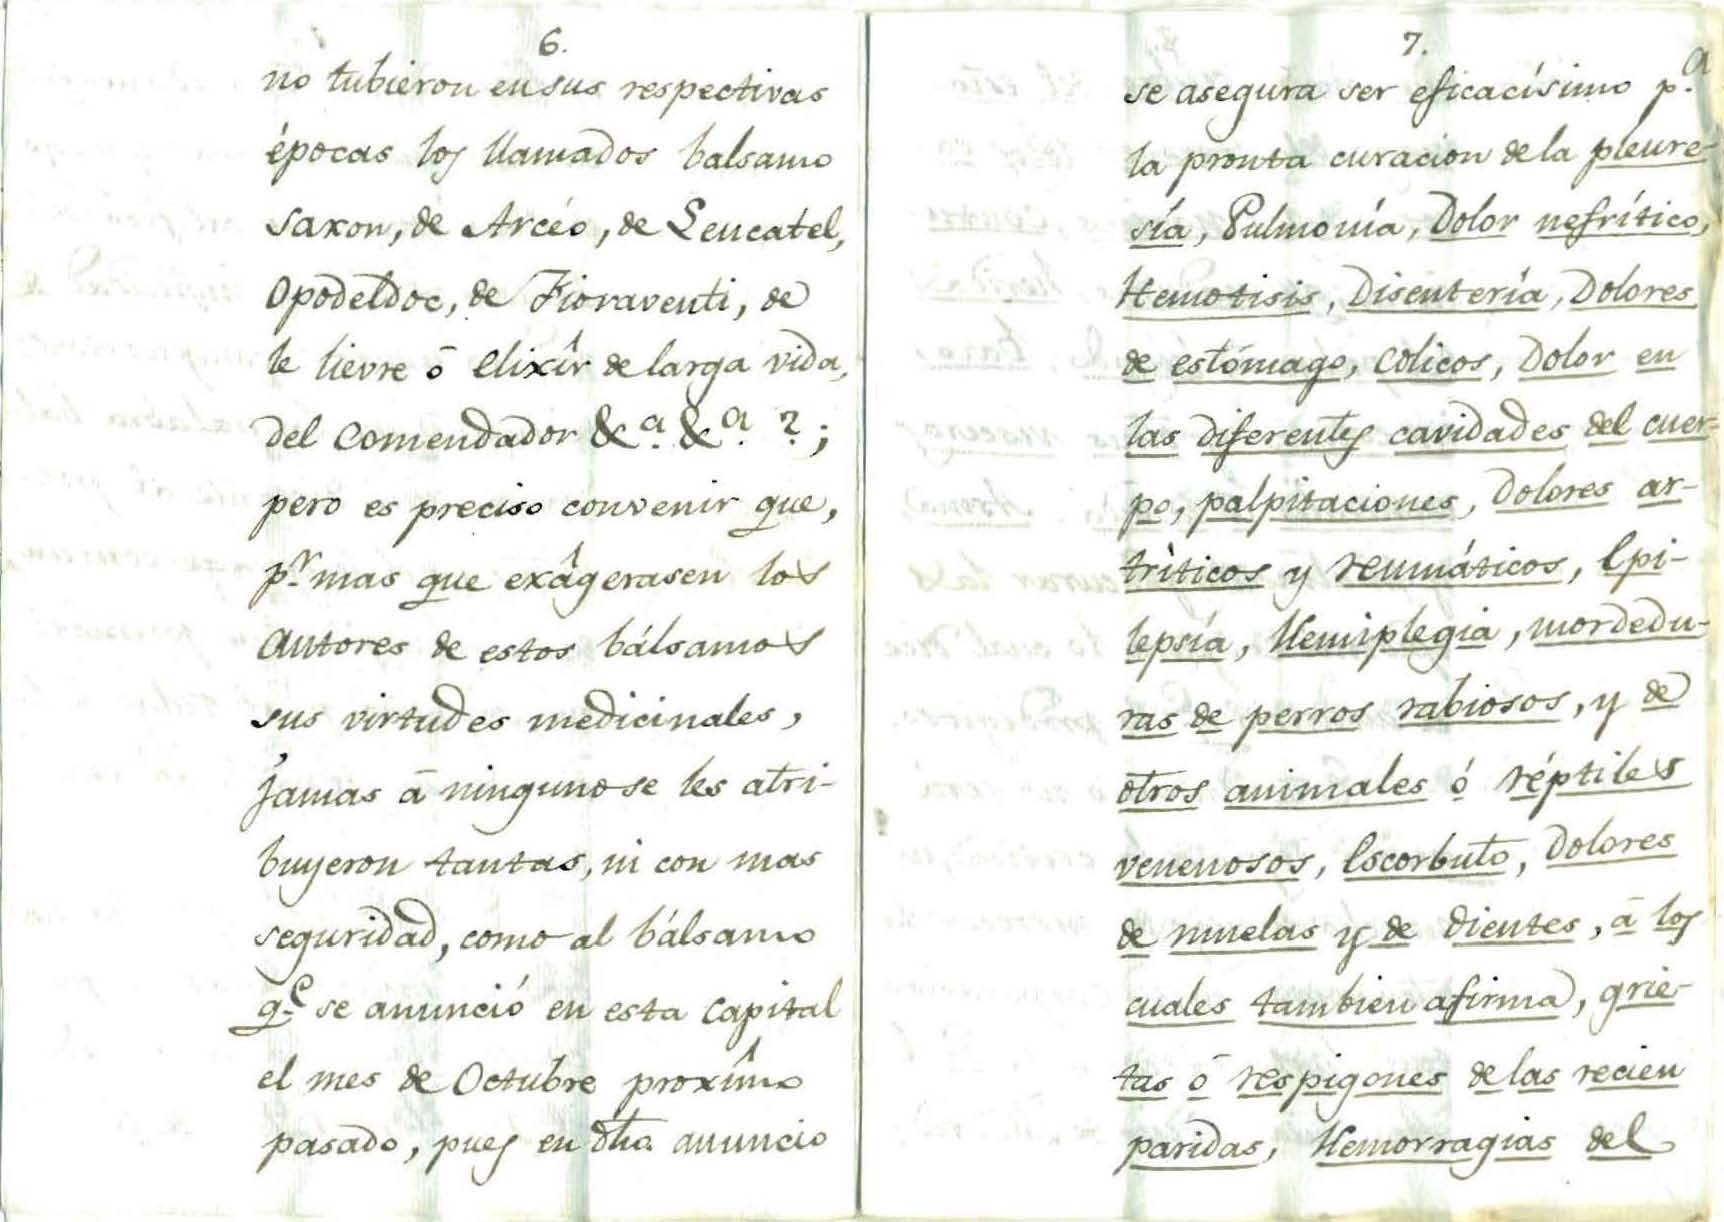 6.
no tubieron en sus respectivas
épocas los llamados balsamo
saxon, de Arcéo, de Leucatel,
Opodeldoc, de Fioraventi, de
le lievre ō elixîr de larga vida,
del Comendador &.ª &.ª ?;
pero es preciso convenir que,
p.r mas que exâgerasen los
autores de estos bálsamos
sus virtudes medicinales,
jamas ā ninguno se les atri-
buyeron tantas, ni con mas
seguridad, como al bálsamo
q.e se anunció en esta Capital
el mes de Octubre proxîmo
pasado, pues en dho. anuncio
7.
se asegura ser eficacísimo p.a
la pronta curacion de la pleure-
sía, Pulmonía, Dolor nefrítico,
Hemotisis, Disentería, Dolores
de estómago, colicos, Dolor en
las diferentes cavidades del cuer-
po, palpitaciones, Dolores ar-
tríticos y reumáticos, Epi-
lepsía, Hemiplegia, mordedu-
ras de perros rabiosos, y de
otros animales ó réptiles
venenosos, Escorbuto, Dolores
de muelas y de dientes, ā los
cuales tambien afirma, grie-
tas ō respigones de las recien
paridas, Hemorragias del